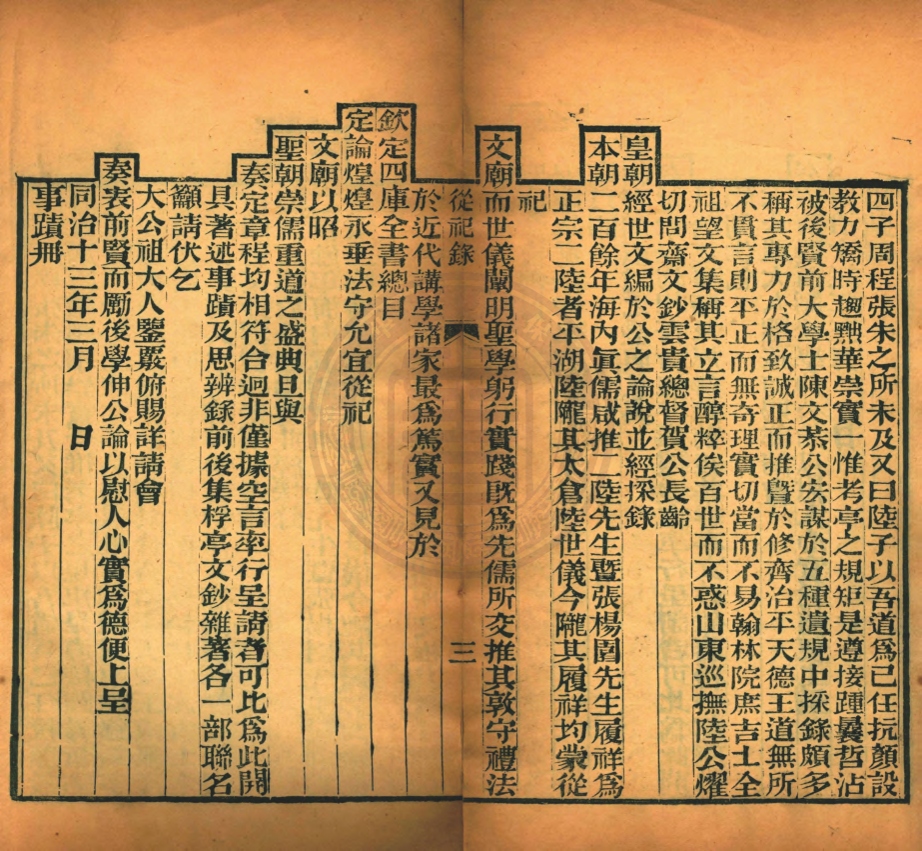 四子周程張朱之所未及又曰陸子以吾道爲己任抗顏設
教力矯時趨黜華崇實一惟考亭之規矩是遵接踵曩哲沾
被後賢前大學士陳文恭公宏謀於五種遺規中採錄頗多
稱其專力於格致誠正而推暨於修齊治平天德王道無所
不貫言則平正而無奇理實切當而不易翰林院庶吉士全
祖望文集稱其立言醇粹俟百世而不惑山東巡撫陸公燿
切問齋文鈔雲貴總督賀公長齡
皇朝經世文編於公之論說並經採錄
本朝二百餘年海內眞儒咸推二陸先生暨張楊園先生履祥爲
正宗二陸者平湖陸隴其太倉陸世儀今隴其履祥均蒙從
祀
文廟而世儀闡明聖學躬行實踐既爲先儒所交推其敦守禮法
從祀錄 三
於近代講學諸家最爲篤實又見於
欽定四庫全書總目
定論煌煌永垂法守允宜從祀
文廟以昭
聖朝崇儒重道之盛典且與
奏定章程均相符合迥非僅據空言率行呈請者可比爲此開
具著述事蹟及思辨錄前後集桴亭文鈔雜著各一部聯名
籲請伏乞
大公祖大人鑒覈俯賜詳請會
奏表前賢而勵後學伸公論以慰人心實爲德便上呈
同治十三年三月 日
事蹟冊